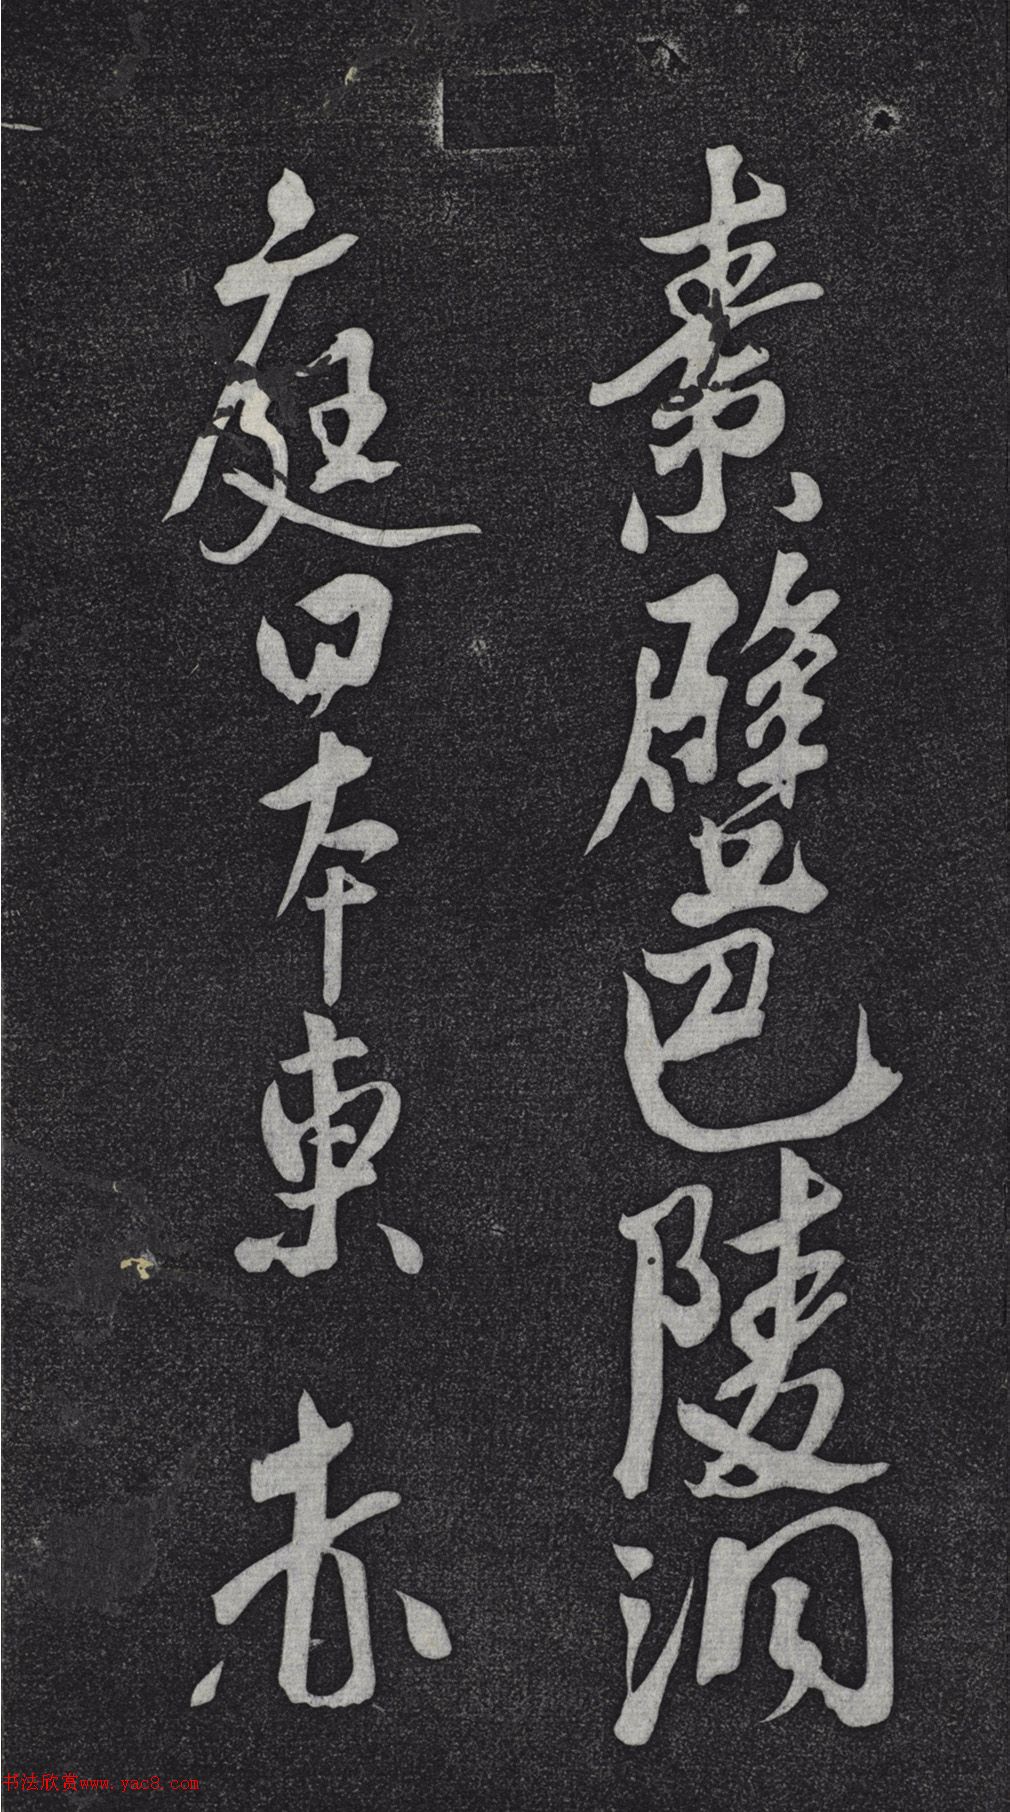 素壁巴陵洞
庭日本東赤
书法欣赏www.yac8.com